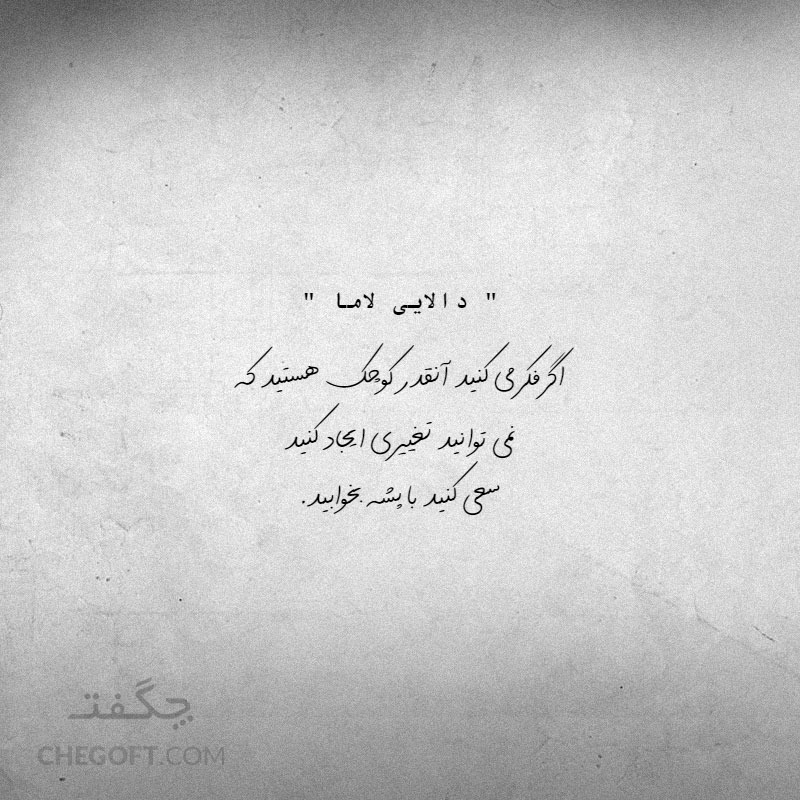 " دالایی لاما "
اگر فکر می کنید آنقدر کوچک هستید که
نمی توانید تغییری ایجاد کنید
سعی کنید با پشه بخوابید.
چگفت
CHEGOFT.COM